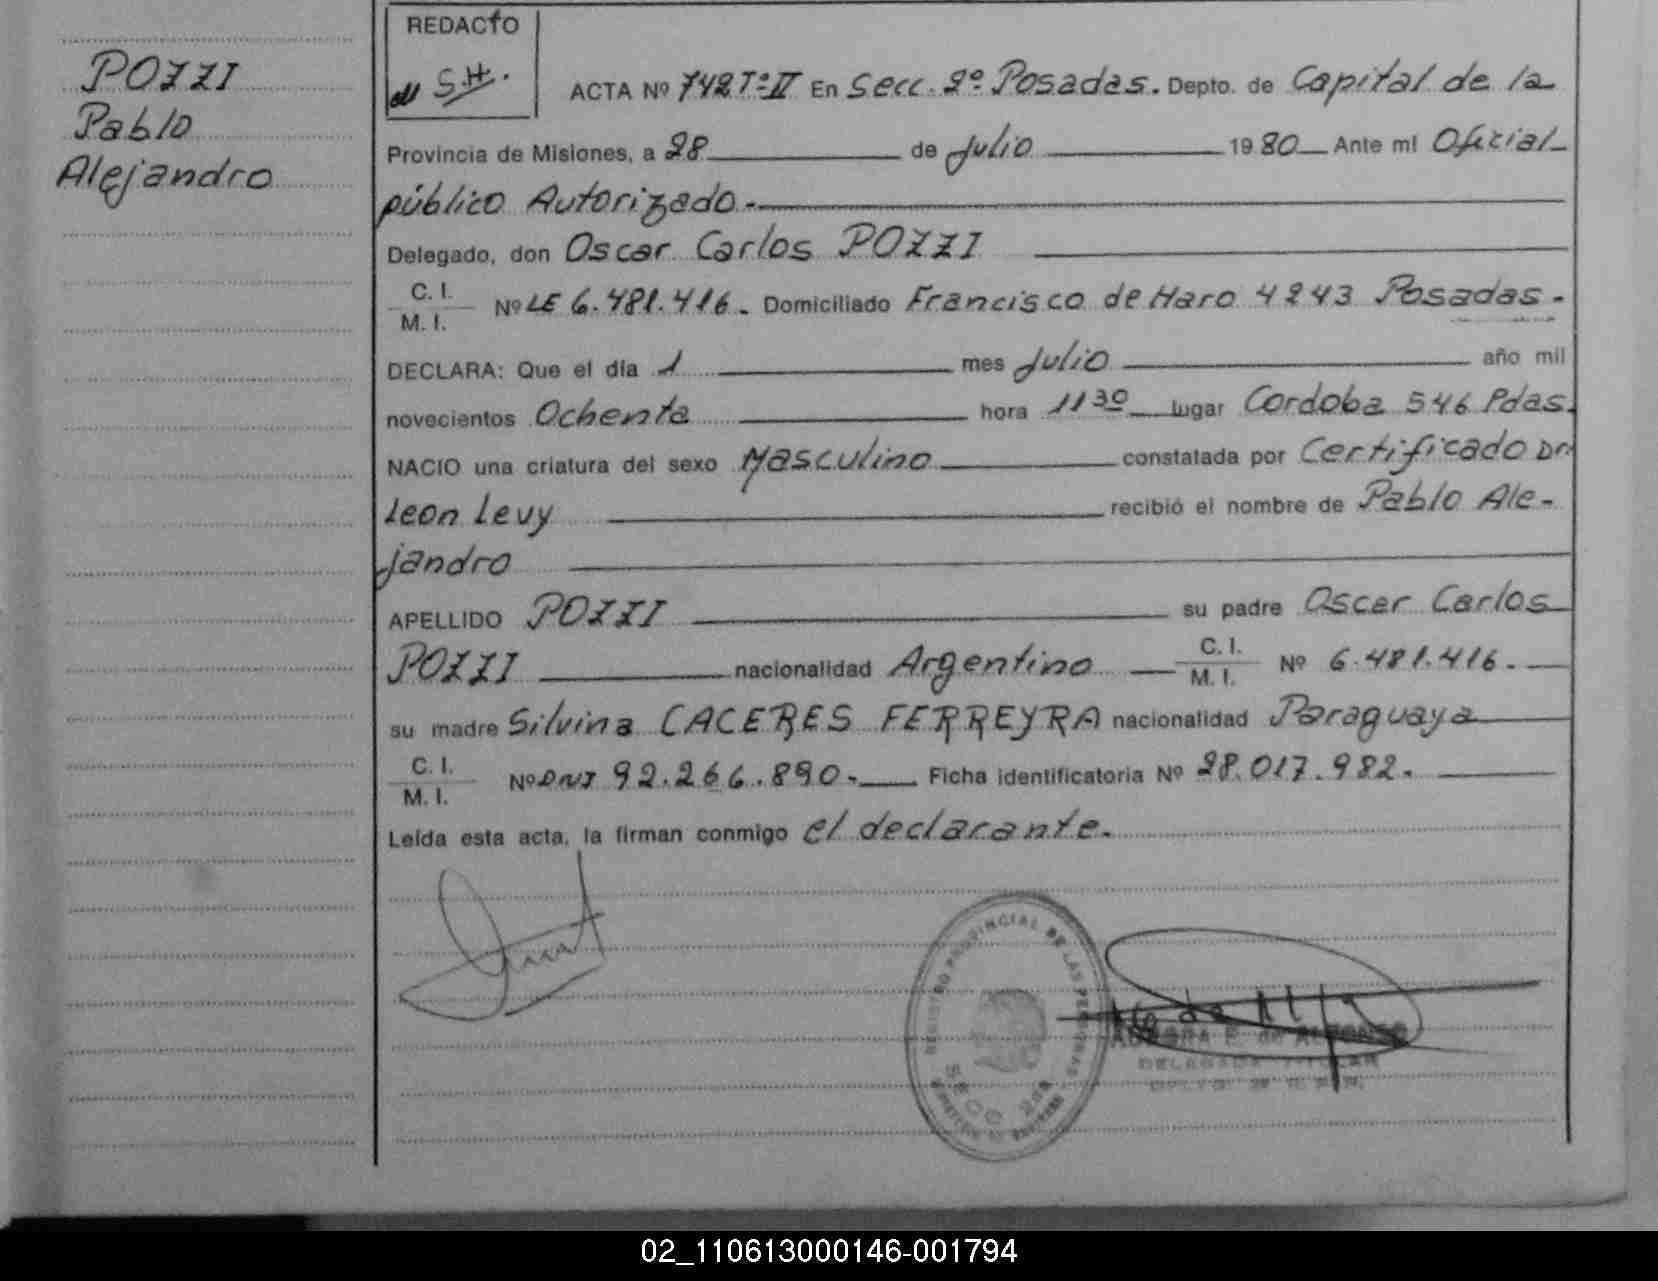 POZZI
Pablo
Alejandro
REDACTO
S.H.
ACTA Nº 742 Tº II En Secc. 2º Posadas. Depto. de Capital de la
Provincia de Misiones, a 28 de Julio 1980 Ante mí Oficial
público Autorizado.
Delegado, don Oscar Carlos POZZI
C. I.
M. I. Nº LE 6.481.416. Domiciliado Francisco de Haro 4243 Posadas.
DECLARA: Que el día 1 mes Julio año mil
novecientos Ochenta hora 11 30 lugar Cordoba 546 Pdas.
NACIO una criatura del sexo Masculino constatada por Certificado Dr
Leon Levy recibió el nombre de Pablo Ale-
jandro
APELLIDO POZZI su padre Oscar Carlos
POZZI nacionalidad Argentino C. I. M. I. Nº 6.481.416.
su madre Silvina CACERES FERREYRA nacionalidad Paraguaya
C. I.
M. I. Nº DNI 92.266.890. Ficha identificatoria Nº 28.017.982.
Leída esta acta, la firman conmigo el declarante.
REGISTRO PROVINCIAL DE LAS PERSONAS
SECC 2da
DELEGADA TITULAR
02_110613000146-001794